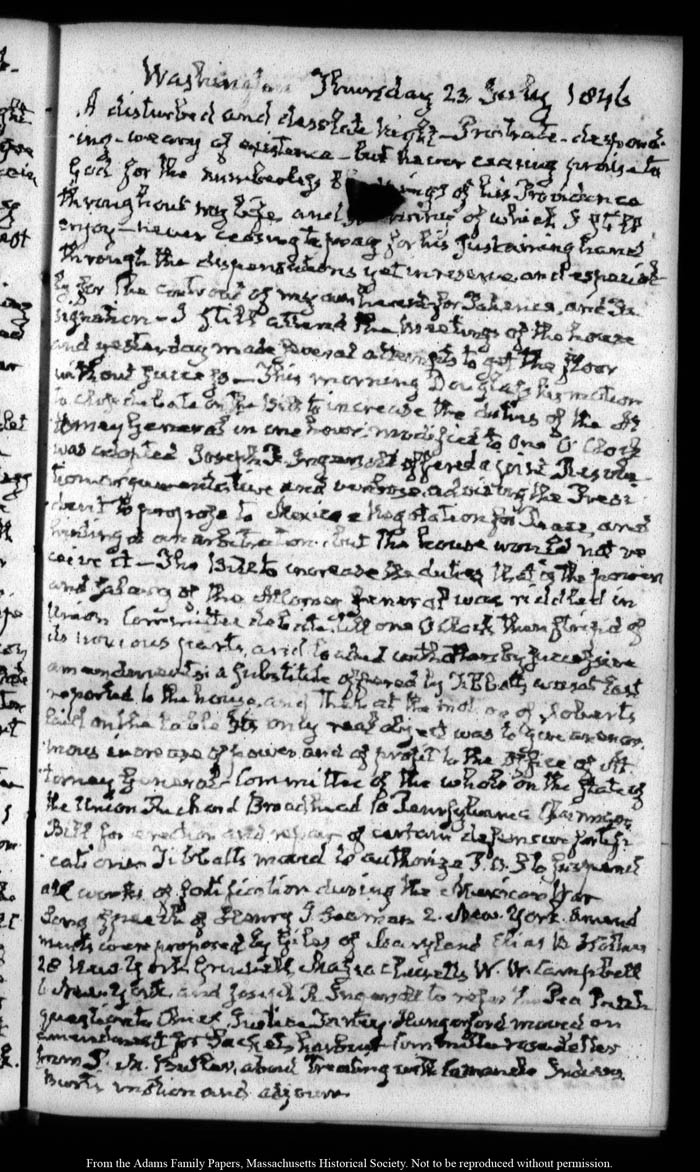 Washington Thursday 23. July 1846
A disturbed and desolate night – Prostrate – despond-
ing – weary of existence – but never ceasing praise to
God for the numberless blessings of his Providence
throughout my life, and of which I still
enjoy – never ceasing to pray for his sustaining hand
through the dispensations yet in reserve and especial-
ly for the controul of my own heart for Patience, and Re
signation – I still attend the meetings of the house
and yesterday made several attempts to get the floor
without success – This morning Douglass's motion
to close debate on the Bill to increase the duties of the At
torney General in one hour, modified to one O'Clock
was adopted Joseph R. Ingersoll offered a joint Resolu-
tion argumentative and verbose, advising the Presi-
dent to propose to Mexico a Negotiation for Peace, and
hinting at an arbitration, but the house would not re
ceive it – The Bill to increase the duties that is the power
and salary of the Attorney General was riddled in
Union Committee debate, till one O'Clock then stripp'd of
its noxious parts, and loaded with others by successive
amendments; a substitute offered by Tibbatts was at last
reported to the house, and then at the motion of Roberts
laid on the table Its only real object was to give an enor-
mous increase of power and of profit to the Office of At-
torney General – Committee of the whole on the state of
the Union Richard Brodhead Pennsylvania Chairman
Bill for erection and repair of certain defensive fortifi
cations Tibbatts moved to authorize P.U.S to suspend
all works of fortification during the Mexican War
Long speech of Henry I. Seaman 2. New-York. Amend
ments were proposed by Giles of Maryland Elias B. Holmes
28 New York Grinnell, Massachusetts W. W. Campbell
6 New-York, and Joseph R. Ingersoll to refer the Pea Patch
question to Chief Justice Taney. Hungerford moved an
amendment for Sackets harbour Committee rose letter
from P. M. Butler, about Treating with Comanche Indians
Burt's motion and adjourn